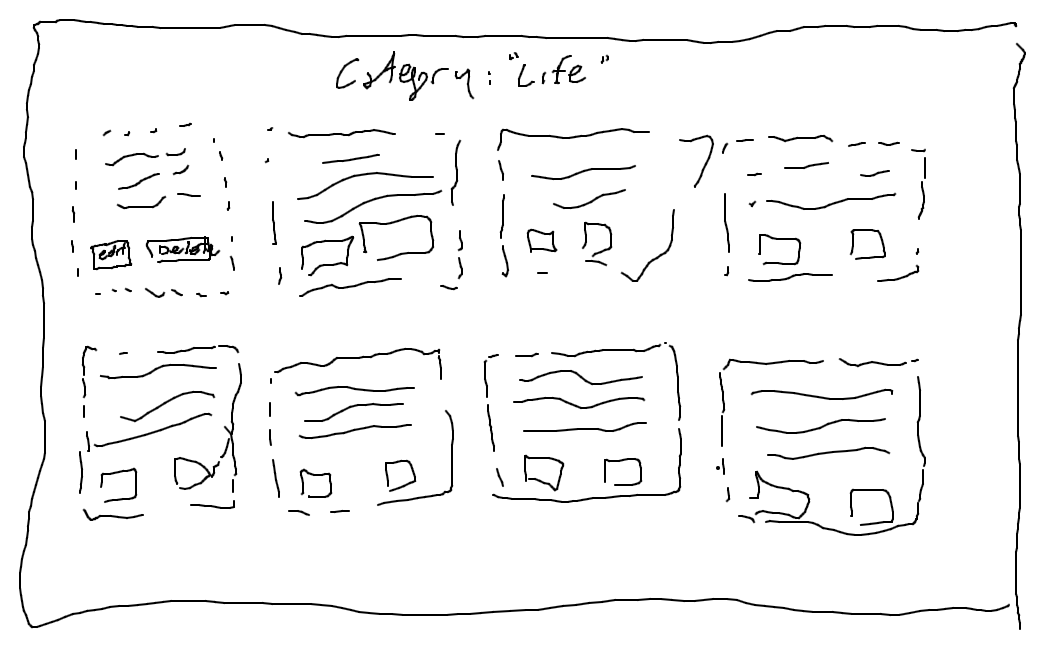 Category: "Life"
edit Delete